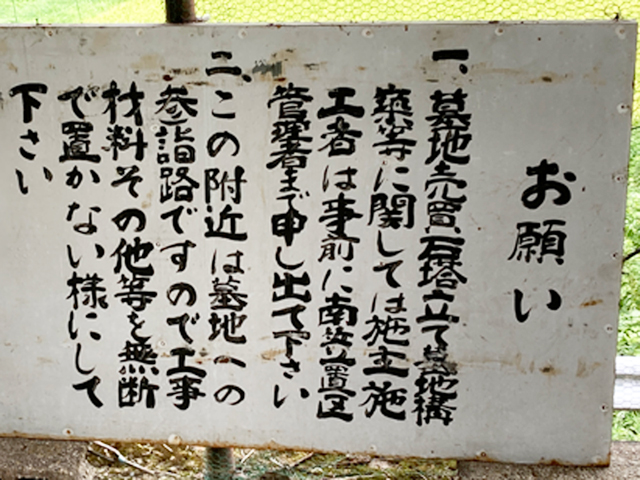 お願い
一、墓地売買石塔立て墓地構
築等に関しては施主施
工者は事前に南笠置区
管理者まで申し出て下さい
二、この附近は墓地への
参詣路ですので工事
材料その他等を無断
で置かない様にして
下さい